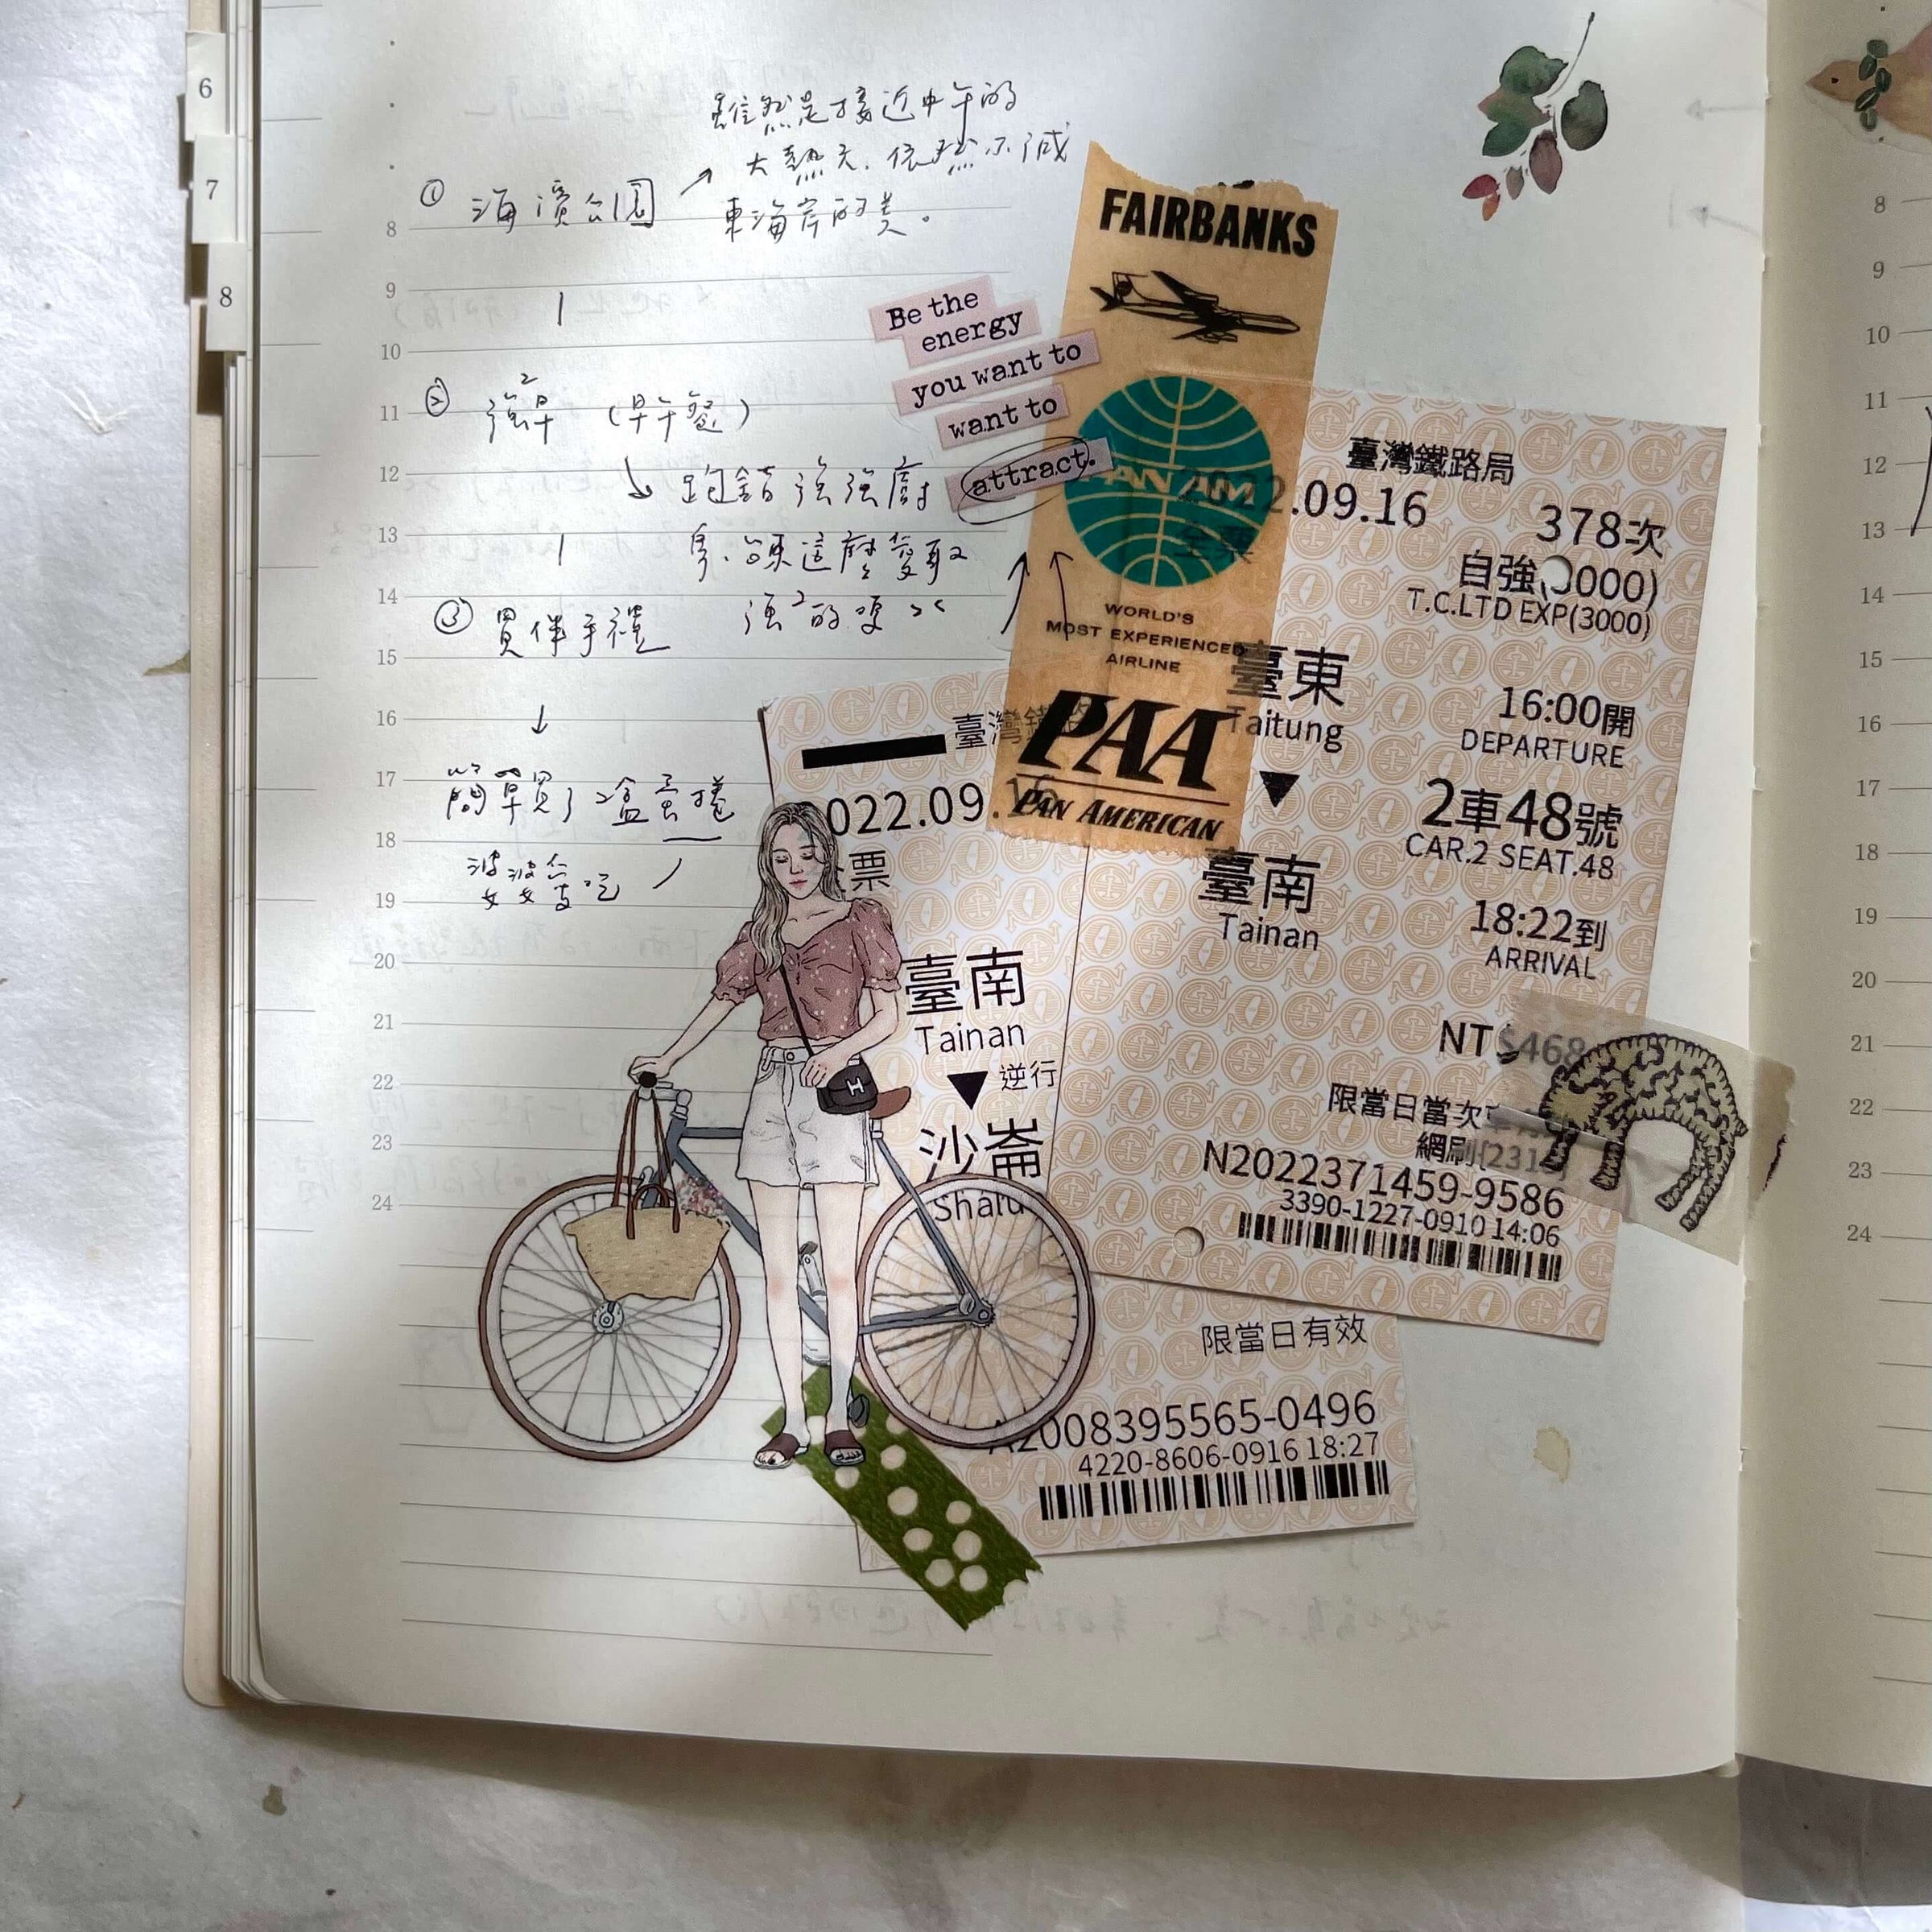 6
7
8
雖然是接近中午的
大熱天，依然不減
東海岸的美。
① 海濱公園
② 強²早 （早午餐）
跑錯強強廚
房，的這麼愛取
強²的哽 ><
③ 買伴手禮
簡單買了2盒蛋捲
婆婆愛吃
8
9
10
11
12
13
14
15
16
17
18
19
20
21
22
23
24
Be the
energy
you want to
want to
attract.
FAIRBANKS
PAN AM
WORLD'S
MOST EXPERIENCED
AIRLINE
PAA
PAN AMERICAN
臺灣鐵路局
2022.09.16
378次
全票
自強(3000)
T.C.LTD EXP(3000)
臺東
Taitung
16:00開
DEPARTURE
2車48號
CAR.2 SEAT.48
臺南
Tainan
18:22到
ARRIVAL
NT$468
限當日當次
網刷
N2022371459-9586
3390-1227-0910 14:06
臺灣鐵路
2022.09.16
全票
臺南
Tainan
逆行
沙崙
Shalu
限當日有效
A2008395565-0496
4220-8606-0916 18:27
H
8
9
10
11
12
13
14
15
16
17
18
19
20
21
22
23
24